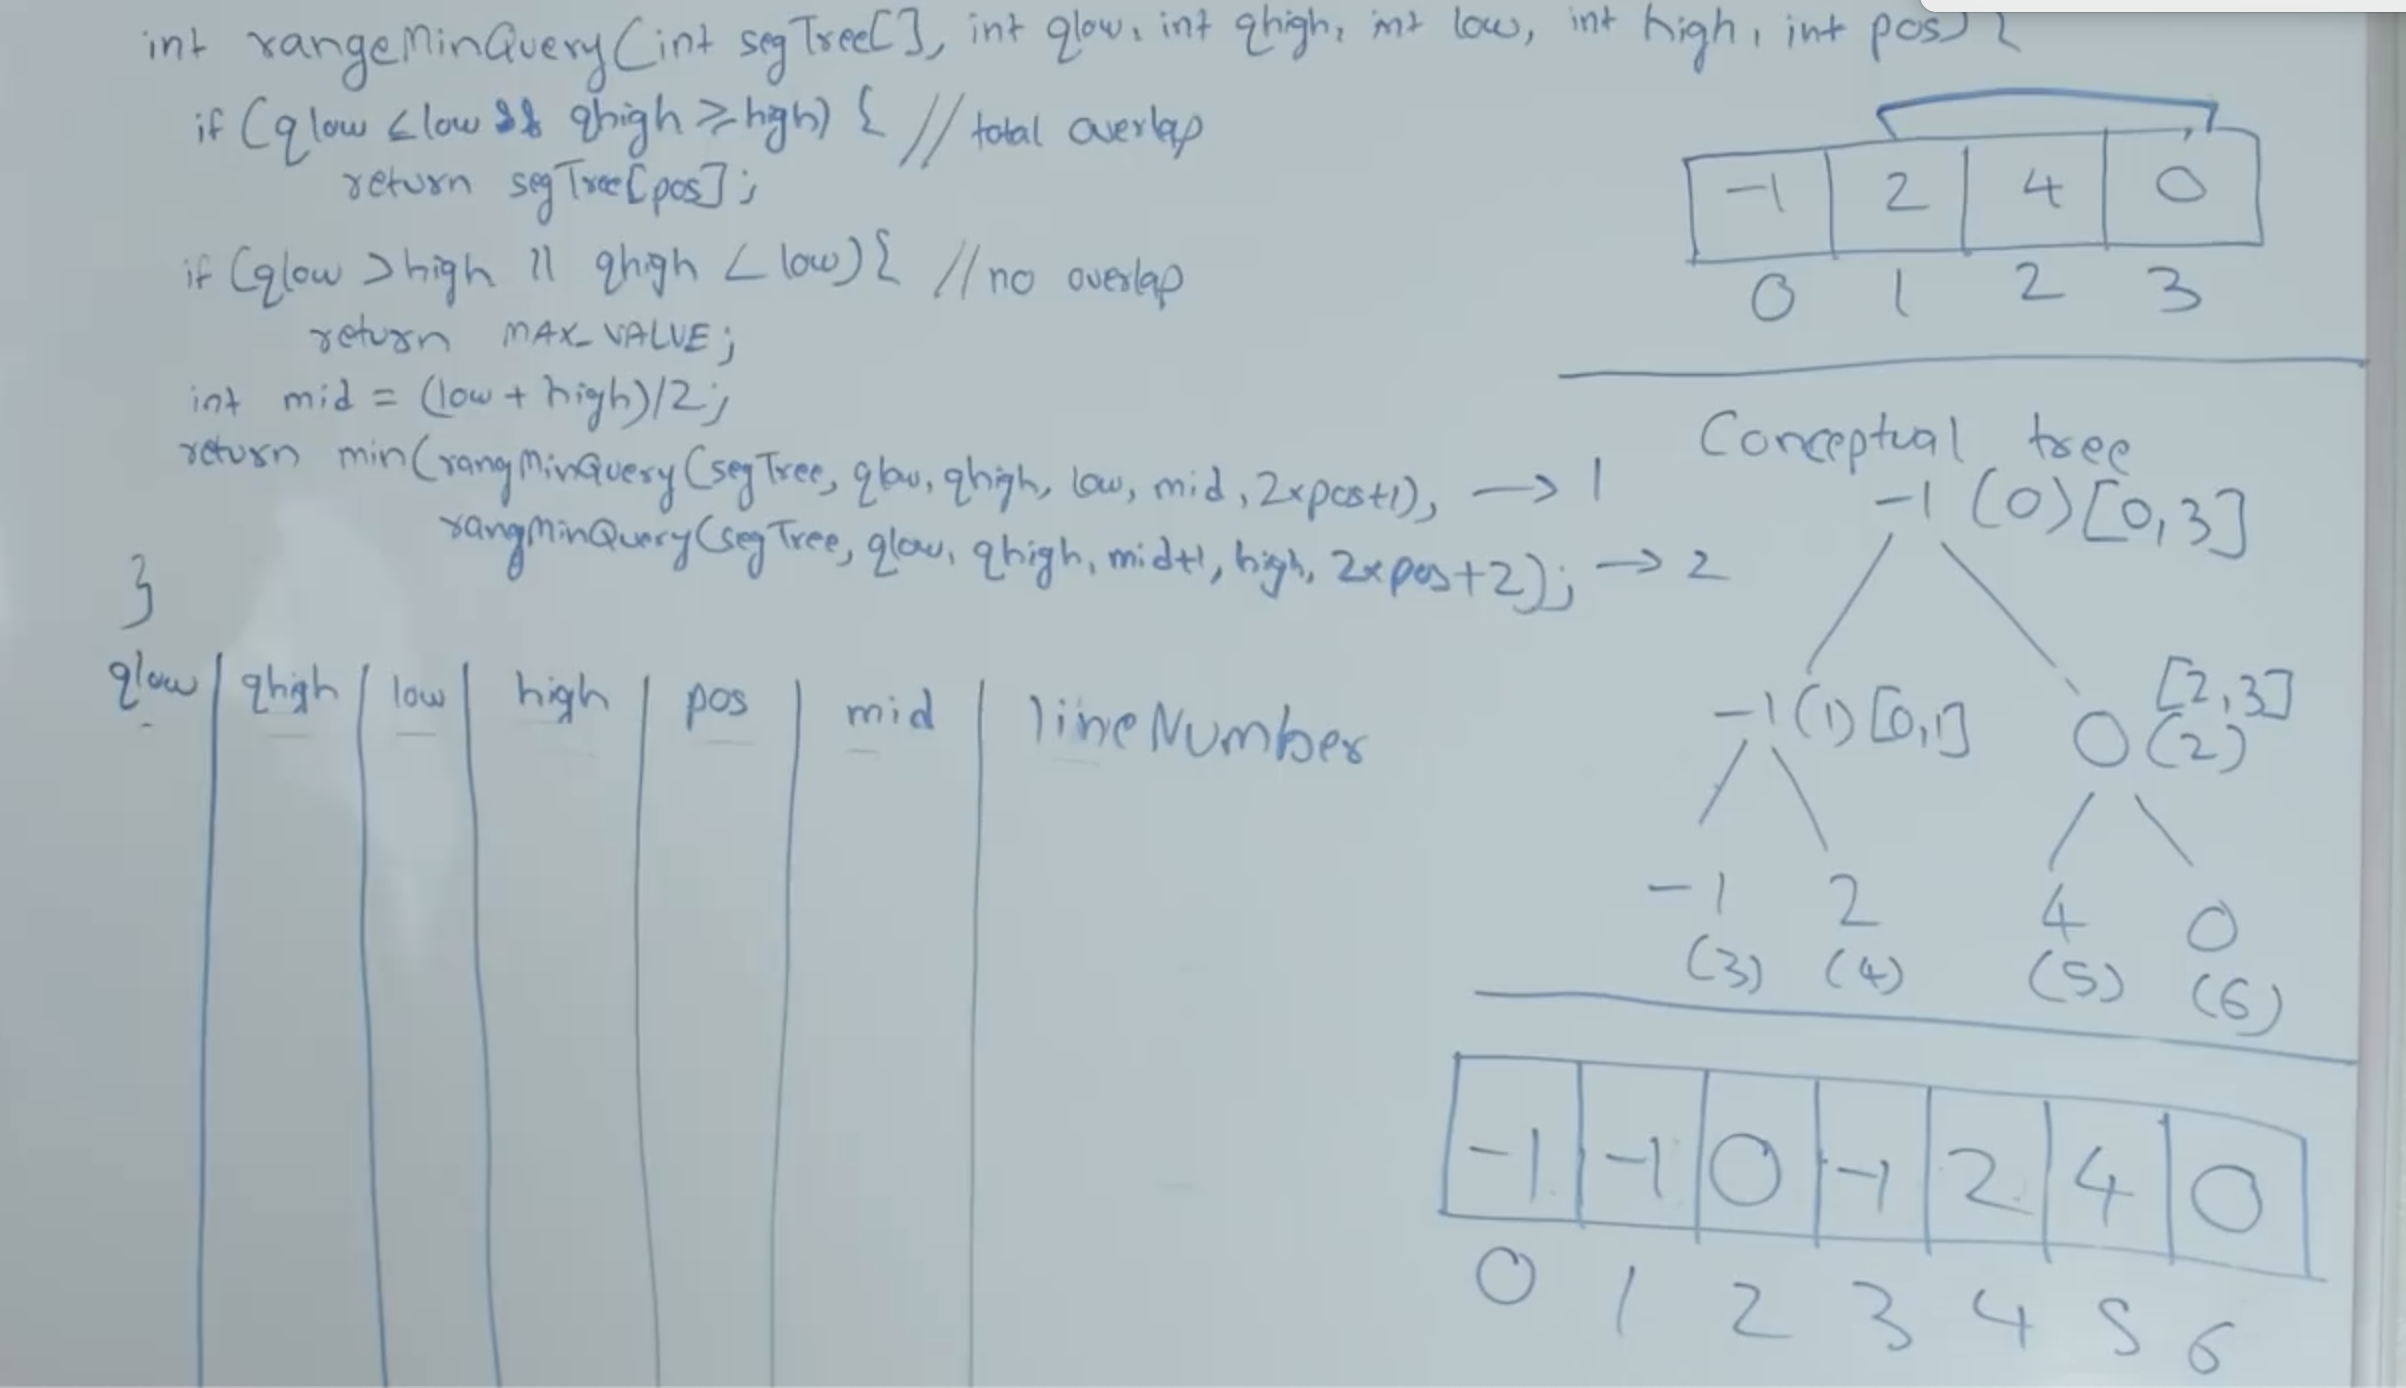 int rangeMinQuery(int segTree[], int qlow, int qhigh, int low, int high, int pos) {
if (qlow ≤ low && qhigh ≥ high) { // total overlap
return segTree[pos];
if (qlow > high || qhigh < low) { // no overlap
return MAX_VALUE;
int mid = (low + high)/2;
return min(rangMinQuery(segTree, qlow, qhigh, low, mid, 2xpos+1), → 1
rangMinQuery(segTree, qlow, qhigh, mid+1, high, 2xpos+2); → 2
}
qlow qhigh low high pos mid lineNumber
-1 2 4 0
0 1 2 3
Conceptual tree
-1 (0) [0,3]
-1 (1) [0,1] 0 (2) [2,3]
-1 2 4 0
(3) (4) (5) (6)
-1 -1 0 -1 2 4 0
0 1 2 3 4 5 6